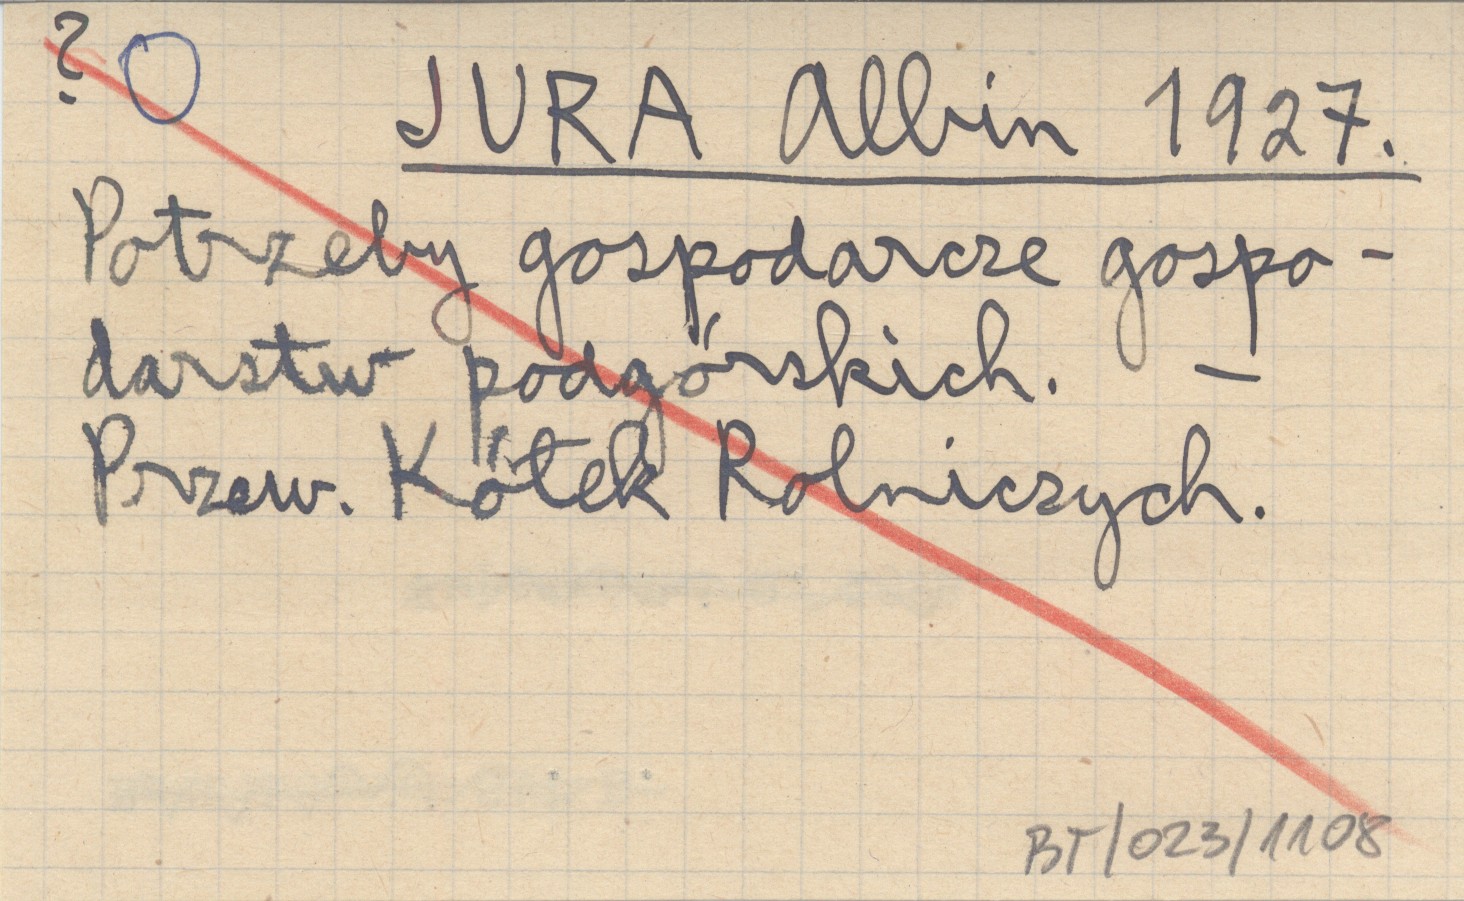 ?
JURA Albin 1927.
Potrzeby gospodarcze gospo-
darstw podgórskich. —
Przew. Kółek Rolniczych.
BT/023/1108